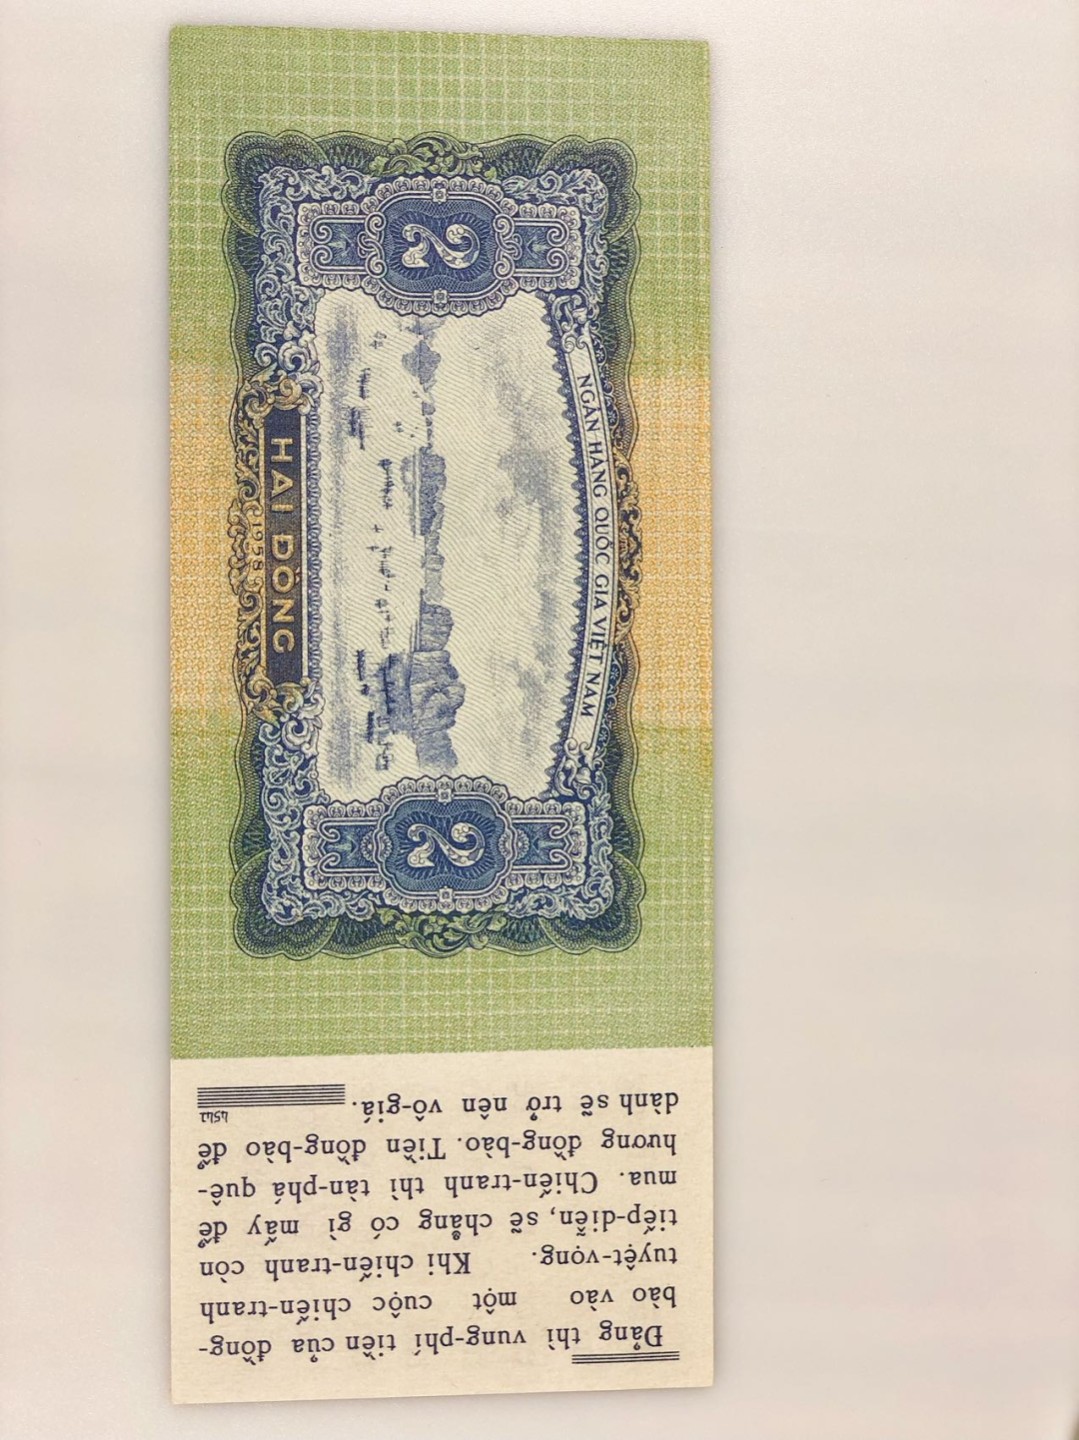 NGÂN HÀNG QUỐC GIA VIỆT NAM
2
2
HAI ĐỒNG
1958
Đảng thì vung-phí tiền của đồng-
bào vào một cuộc chiến-tranh
tuyệt-vọng. Khi chiến-tranh còn
tiếp-diễn, sẽ chẳng có gì mấy để
mua. Chiến-tranh thì tàn-phá quê-
hương đồng-bào. Tiền đồng-bào để
dành sẽ trở nên vô-giá.
4541